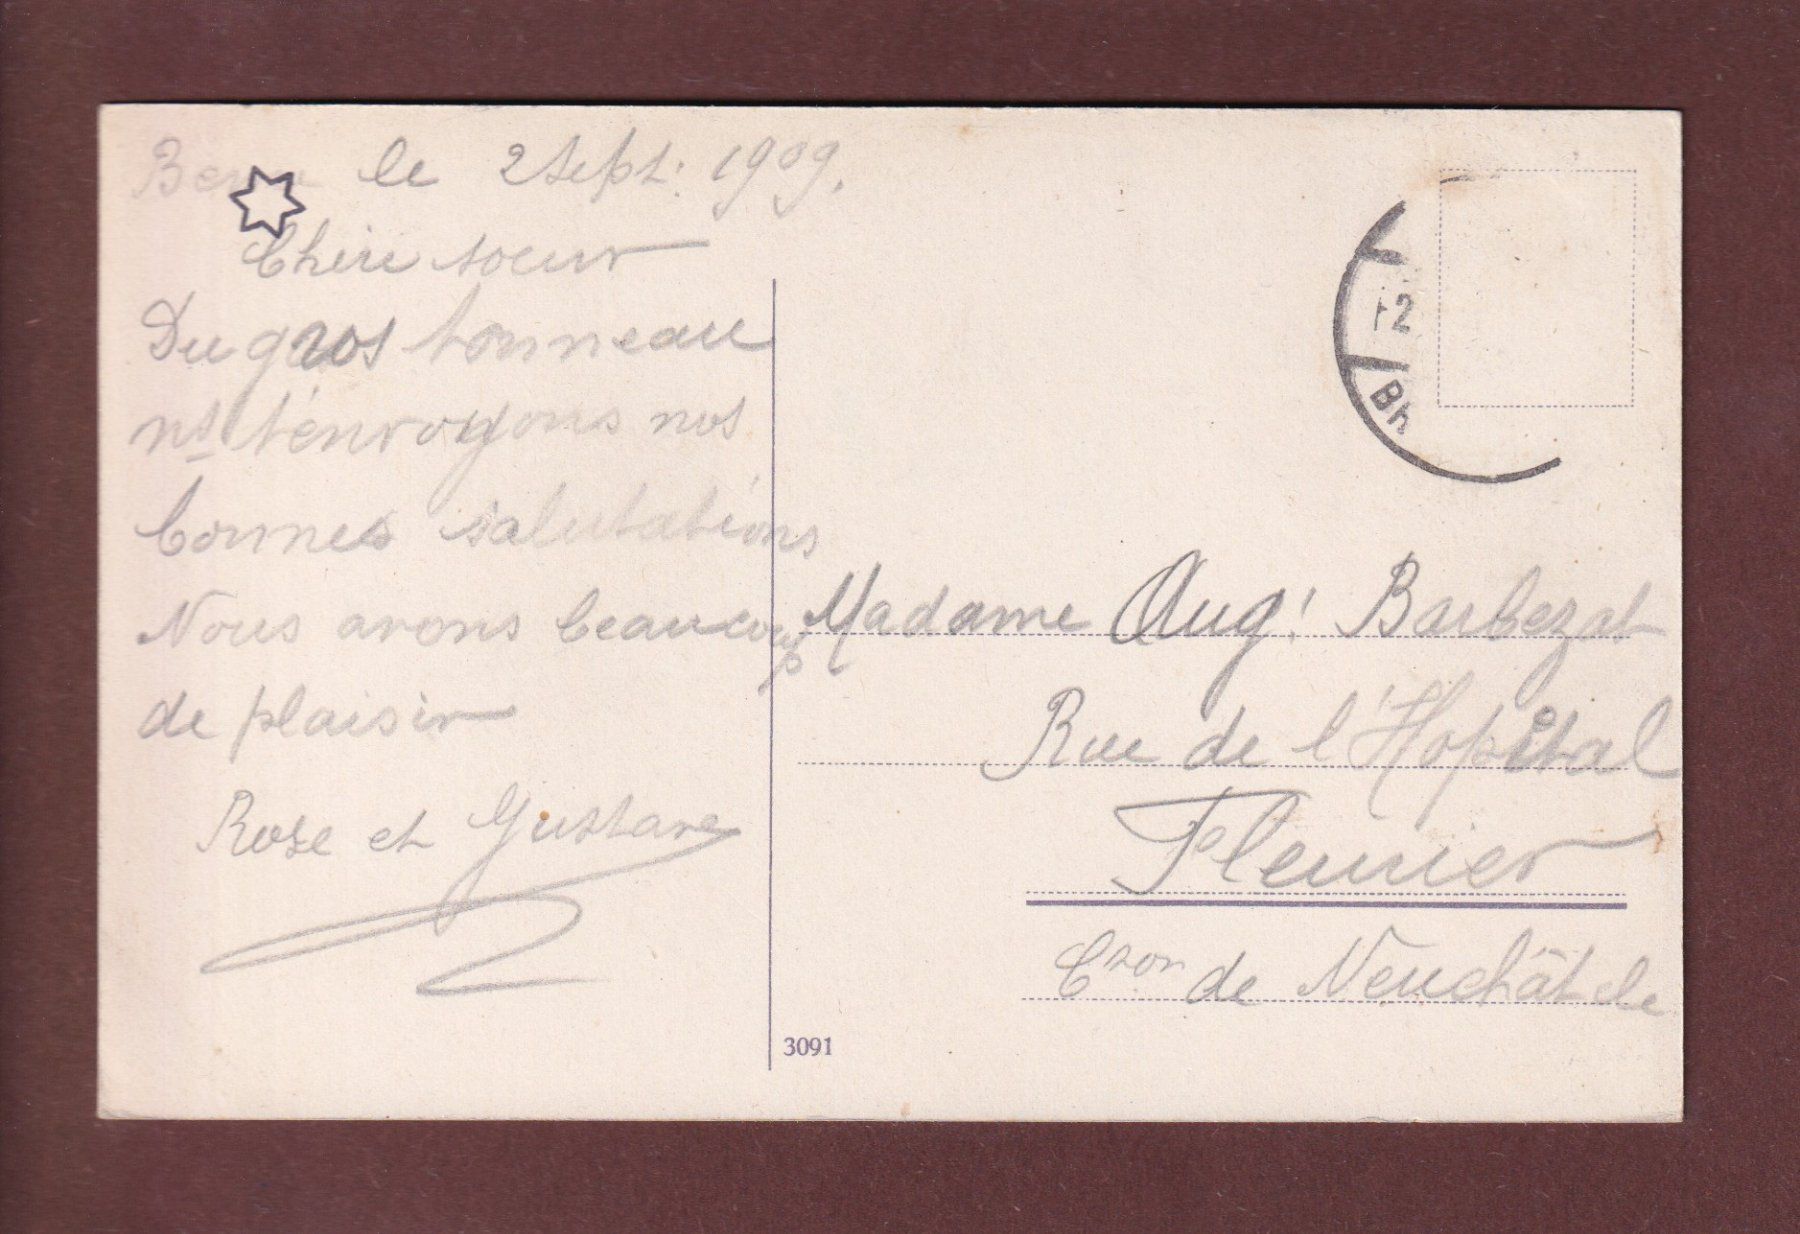 Berne le 2 Sept. 1909.
Chère soeur
Du gros tonneau
ns t'envoyons nos
bonnes salutations
Nous avons beaucoup
de plaisir
Rose et Gustave
2
Bh
Madame Aug! Barbezat
Rue de l'Hopital
Fleurier
Cton de Neuchâtele
3091